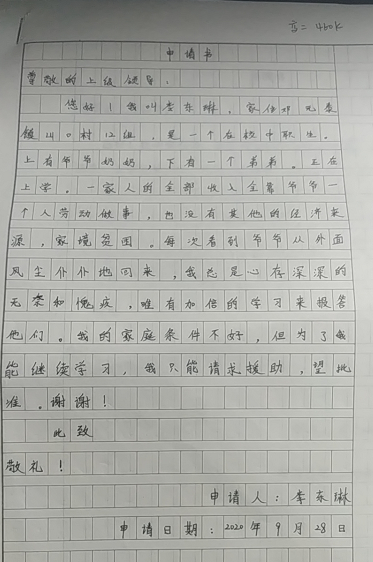 申请书
尊敬的上级领导：
您好！我叫李东琳，家住邓元泰
镇山口村12组，是一个在校中职生。
上有爷爷奶奶，下有一个弟弟。正在
上学。一家人的全部收入全靠爷爷一
个人劳动做事，也没有其他的经济来
源，家境贫困。每次看到爷爷从外面
风尘仆仆地回来，我总是心存深深的
无奈和愧疚，唯有加倍的学习来报答
他们。我的家庭条件不好，但为了我
能继续学习，我只能请求援助，望批
准。谢谢！
此致
敬礼！
申请人：李东琳
申请日期：2020年9月28日